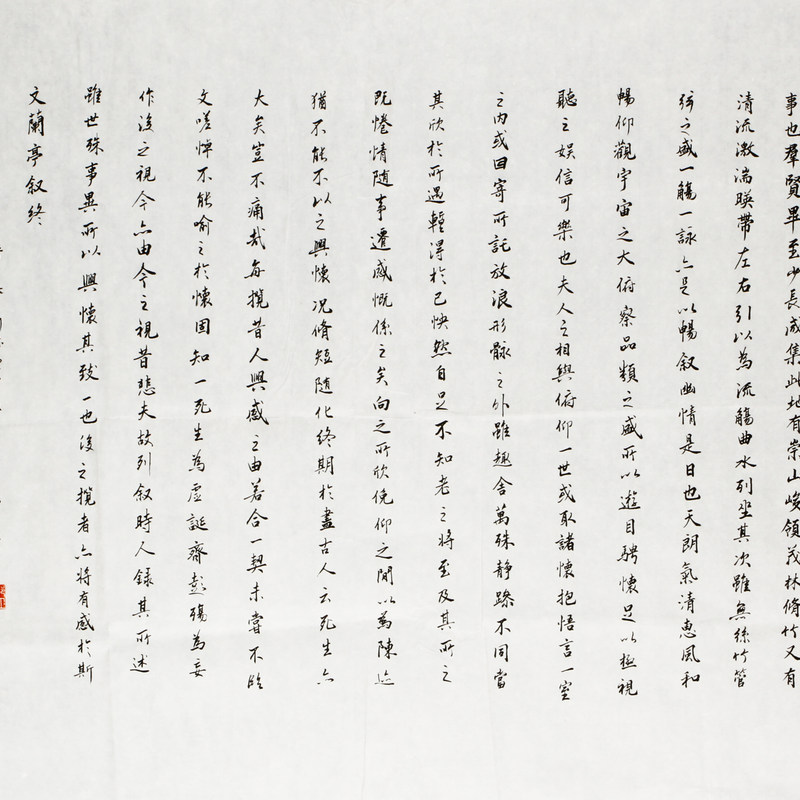 事也羣賢畢至少長咸集此地有崇山峻領茂林脩竹又有
清流激湍暎帶左右引以為流觴曲水列坐其次雖無絲竹管
弦之盛一觴一詠亦足以暢叙幽情是日也天朗氣清惠風和
暢仰觀宇宙之大俯察品類之盛所以遊目騁懷足以極視
聽之娛信可樂也夫人之相與俯仰一世或取諸懷抱悟言一室
之內或因寄所託放浪形骸之外雖趣舍萬殊靜躁不同當
其欣於所遇蹔得於己怏然自足不知老之將至及其所之
既惓情隨事遷感慨係之矣向之所欣俛仰之閒以為陳迹
猶不能不以之興懷況脩短隨化終期於盡古人云死生亦
大矣豈不痛哉每攬昔人興感之由若合一契未嘗不臨
文嗟悼不能喻之於懷固知一死生為虛誕齊彭殤為妄
作後之視今亦由今之視昔悲夫故列叙時人錄其所述
雖世殊事異所以興懷其致一也後之攬者亦將有感於斯
文蘭亭叙終